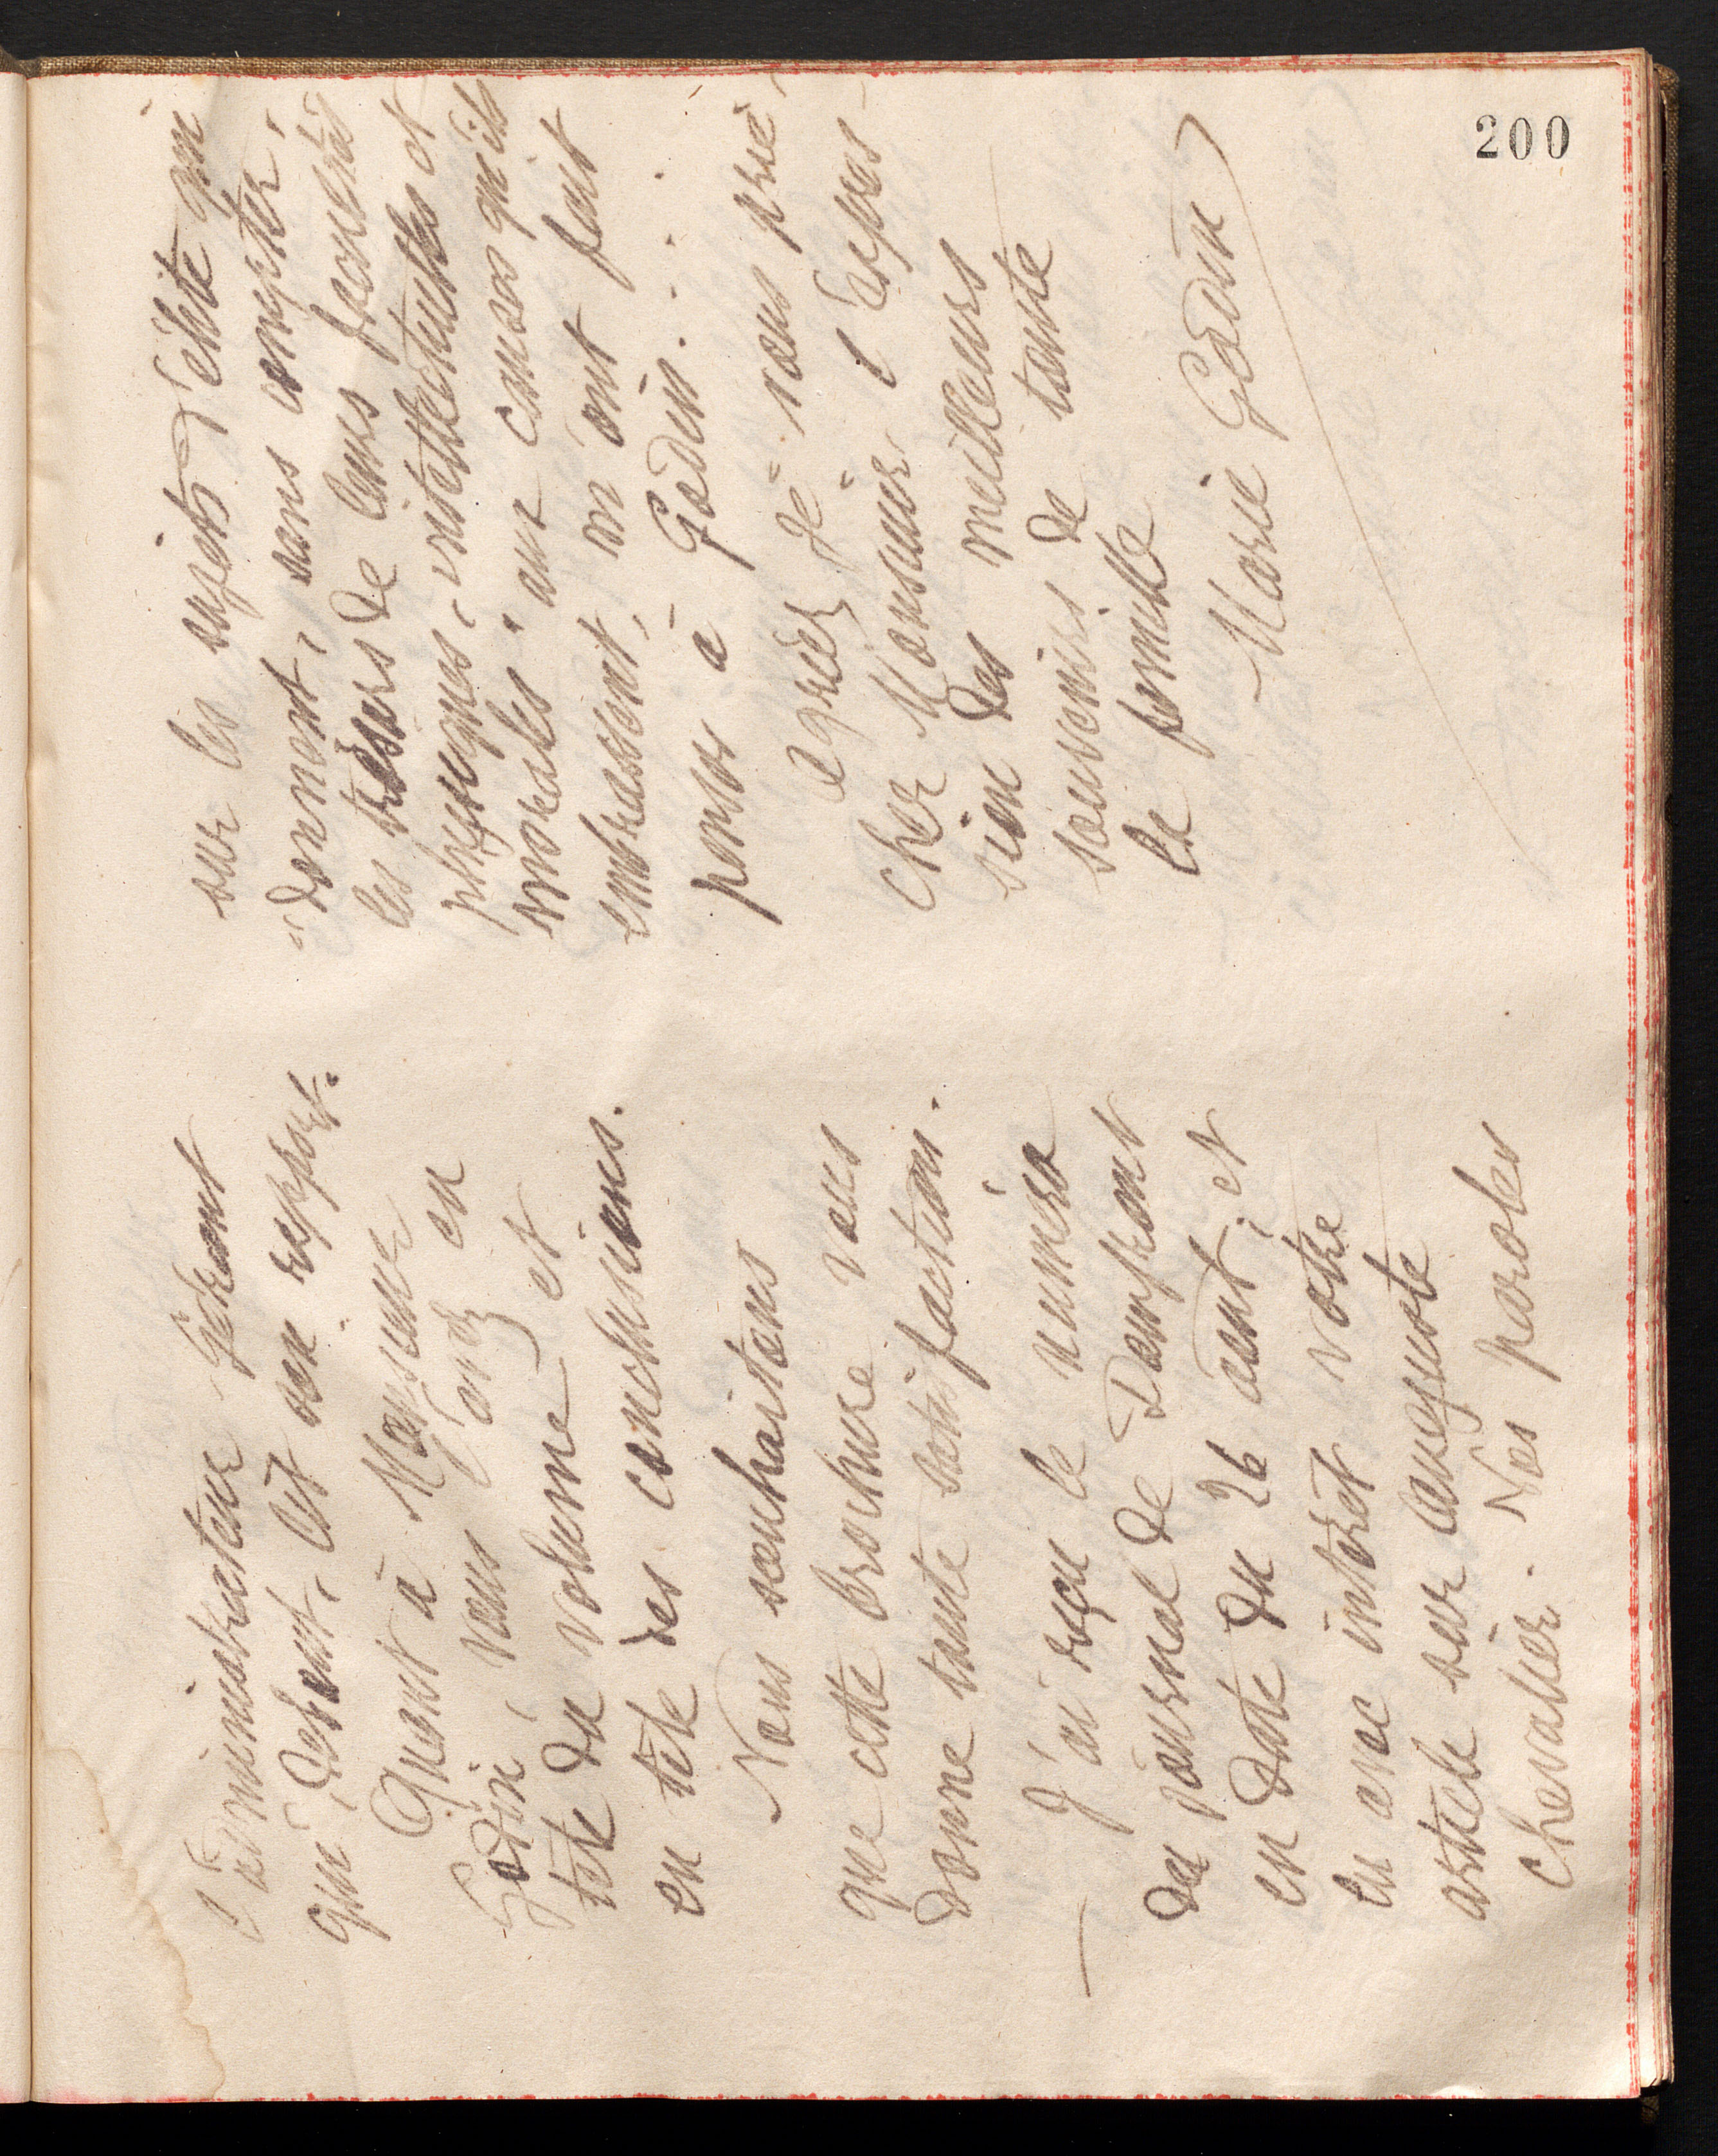 200
l'administrateur Gérant
qui, debout, lit son rapport.
Quant à Monsieur
Godin, vous l'avez en
tête du volume et
en tête des conclusions.
Nous souhaitons
que cette brochure vous
donne toute satisfaction.
— J'ai reçu le numéro
du journal de Domfront
en date du 26 août; et
lu avec intérêt votre
article sur Auguste
Chevalier. Vos paroles
sur les sujets d'élite qui
"donnent, sans compter,
les trésors de leurs facultés
physiques, intellectuelles et
morales" aux causes qu'ils
embrassent, m'ont fait
penser à Godin. . . .
Agréez je vous prie,
cher Monsieur, l'expres-
sion des meilleurs
souvenirs de toute
la famille
Marie Godin